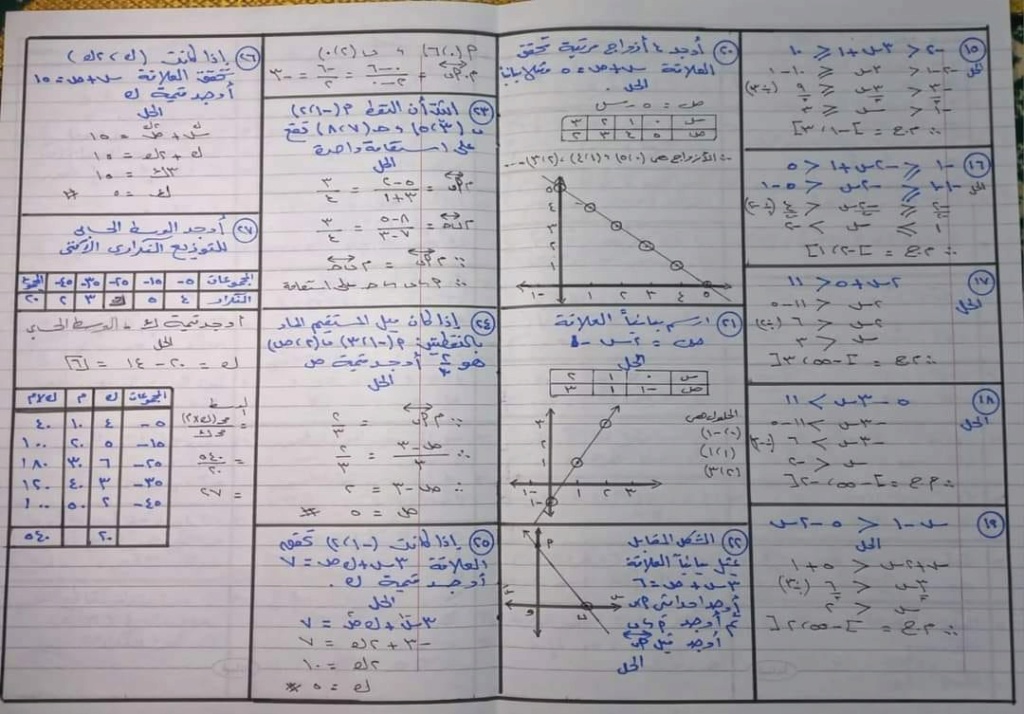 ١٥
-٢ < ٣س + ١ ≤ ١٠
الحل
-٢-١ < ٣س ≤ ١٠-١
-٣ < ٣س ≤ ٩ (÷٣)
-١ < س ≤ ٣
∴ م.ح = ]-١، ٣]
١٦
الحل
∴ م.ح = ]-٢، ١]
١٧
٢س + ٥ > ١١
الحل
٢س > ١١-٥
٢س > ٦ (÷٢)
س > ٣
١٨
٥ - ٣س < ١١
الحل
-٣س < ١١-٥
-٣س < ٦ (÷-٣)
س > -٢
١٩
س - ١ > ٥ - ٢س
الحل
س + ٢س > ٥ + ١
٣س > ٦ (÷٣)
س > ٢
٢٠ أوجد ٤ أزواج مرتبة تحقق
العلاقة س + ص = ٥ ومثلها بيانيا
الحل
ص = ٥ - س
س ٠ ١ ٢ ٣
ص ٥ ٤ ٣ ٢
∴ الأزواج هى (٠،٥) ، (١،٤) ، (٢،٣) ....
٥
٤
٣
٢
١
-١ ١ ٢ ٣ ٤ ٥
٢١ ارسم بيانياً العلاقة
ص = ٢س - ١
الحل
س ٠ ١ ٢
ص -١ ١ ٣
الحلول هى
(٠،-١)
(١،١)
(٢،٣)
٣
١
-١
-١ ١ ٢ ٣
٢٢ الشكل المقابل
يمثل بيانياً العلاقة
٣س + ص = ٦
أوجد
الحل
م
و
ب
م (٠،٦) ، ب (٢،٠)
ميل م ب = (٦-٠)/(٠-٢) = ٦/-٢ = -٣
٢٣ اثبت أن النقط م (-١،٢)
ب (٣،٥) ، ح (٧،٨) تقع
على استقامة واحدة
الحل
ميل م ب = (٥-٢)/(٣+١) = ٣/٤
ميل ب ح = (٨-٥)/(٧-٣) = ٣/٤
∴ م ب = م ب ح
∴ م ، ب ، ح على استقامة
٢٤ إذا كان ميل المستقيم المار
بالنقطتين م (-١،٣) ب (٢،ص)
هو ٢/٣ أوجد قيمة ص
الحل
∴ ميل م ب = ٢/٣
∴ (ص-٣)/٣ = ٢/٣
∴ ص - ٣ = ٢
ص = ٥ #
٢٥ إذا كانت (-١،٢) تحقق
العلاقة ٣س + ك ص = ٧
أوجد قيمة ك .
الحل
٣س + ك ص = ٧
-٣ + ٢ك = ٧
٢ك = ١٠
ك = ٥ #
٢٦ إذا كانت (ك ، ٢ك)
تحقق العلاقة س + ص = ١٥
أوجد قيمة ك
الحل
س + ص = ١٥
ك + ٢ك = ١٥
٣ك = ١٥
ك = ٥ #
٢٧ أوجد الوسط الحسابى
للتوزيع التكرارى الآتى
المجموعات ٥- ١٥- ٢٥- ٣٥- ٤٥- المجموع
التكرار ٤ ٥ ك ٣ ٢ ٢٠
أوجد قيمة ك ، الوسط الحسابى
الحل
ك = ٢٠ - ١٤ = [٦]
المجموعات ك م ك×م
٥- ٤ ١٠ ٤٠
١٥- ٥ ٢٠ ١٠٠
٢٥- ٦ ٣٠ ١٨٠
٣٥- ٣ ٤٠ ١٢٠
٤٥- ٢ ٥٠ ١٠٠
٢٠ ٥٤٠
= مجـ(ك×م)/مجـ ك
= ٥٤٠/٢٠
= ٢٧